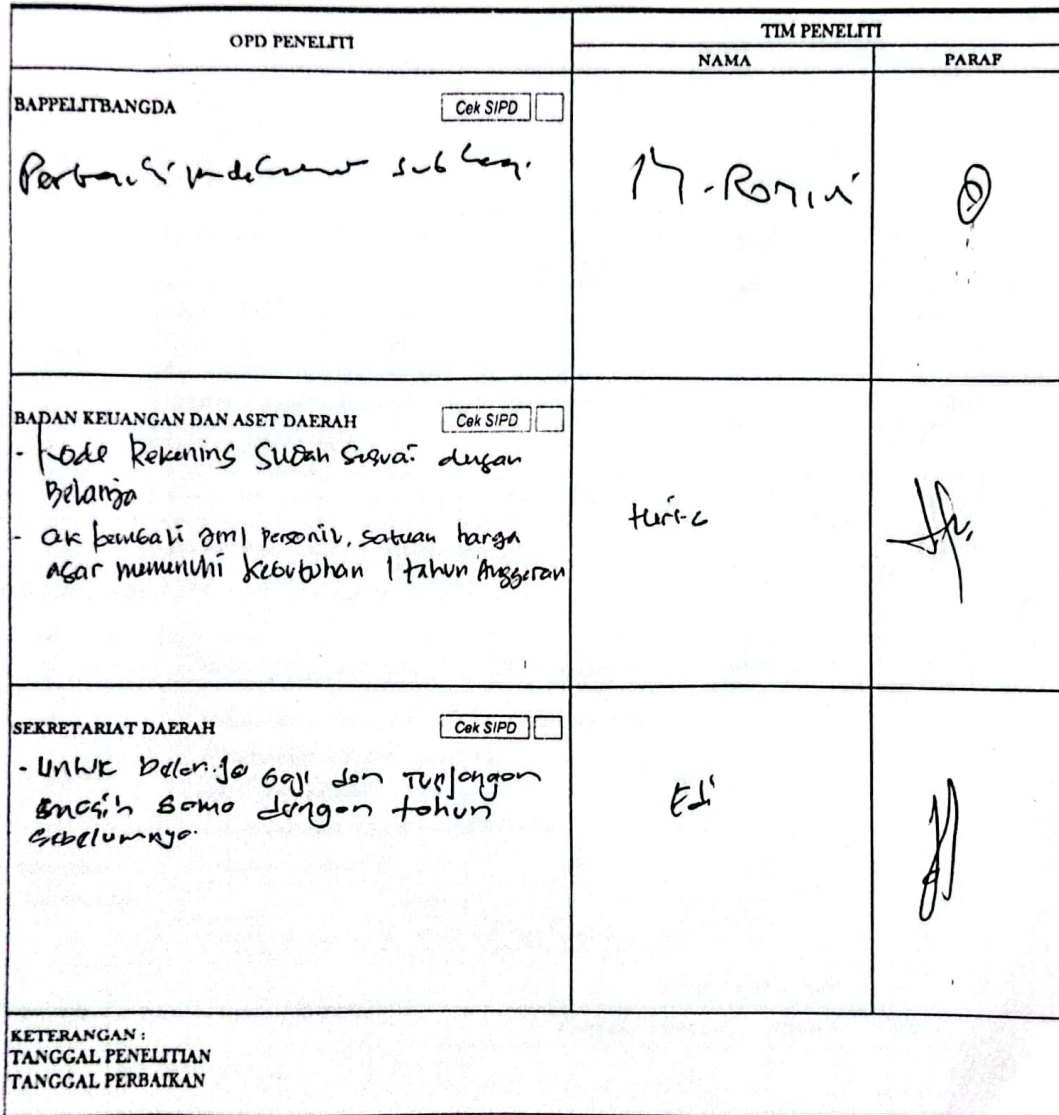 OPD PENELITI
TIM PENELITI
NAMA
PARAF
BAPPELITBANGDA
Cek SIPD
sub
M. Romi
BADAN KEUANGAN DAN ASET DAERAH
Cek SIPD
- Kode Rekening Sudah Sesuai dengan
Belanja
- Jml personil, satuan harga
agar memenuhi kebutuhan 1 tahun Anggaran
SEKRETARIAT DAERAH
Cek SIPD
- Untuk belanja Gaji dan Tunjangan
masih sama dengan tahun
sebelumnya.
Edi
KETERANGAN :
TANGGAL PENELITIAN
TANGGAL PERBAIKAN